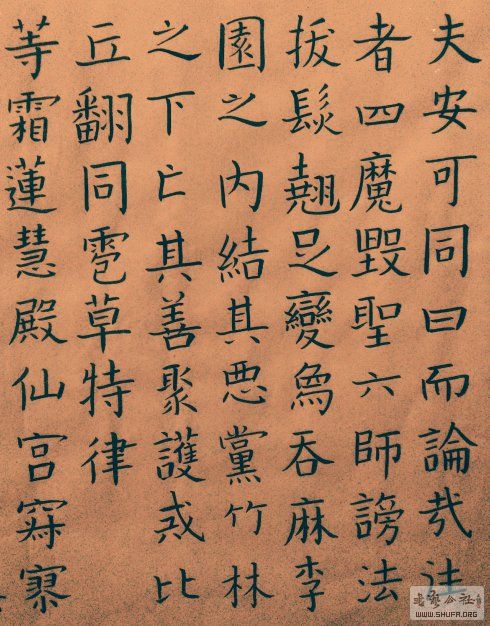 夫安可同日而論哉往
者四魔毀聖六師謗法
拔髮翹足變象吞麻李
園之內結其悪黨竹林
之下亡其善聚護戒比
丘翻同雹草特律
等霜蓮慧殿仙宮寂寥
书艺公社
WWW.SHUFA.ORG